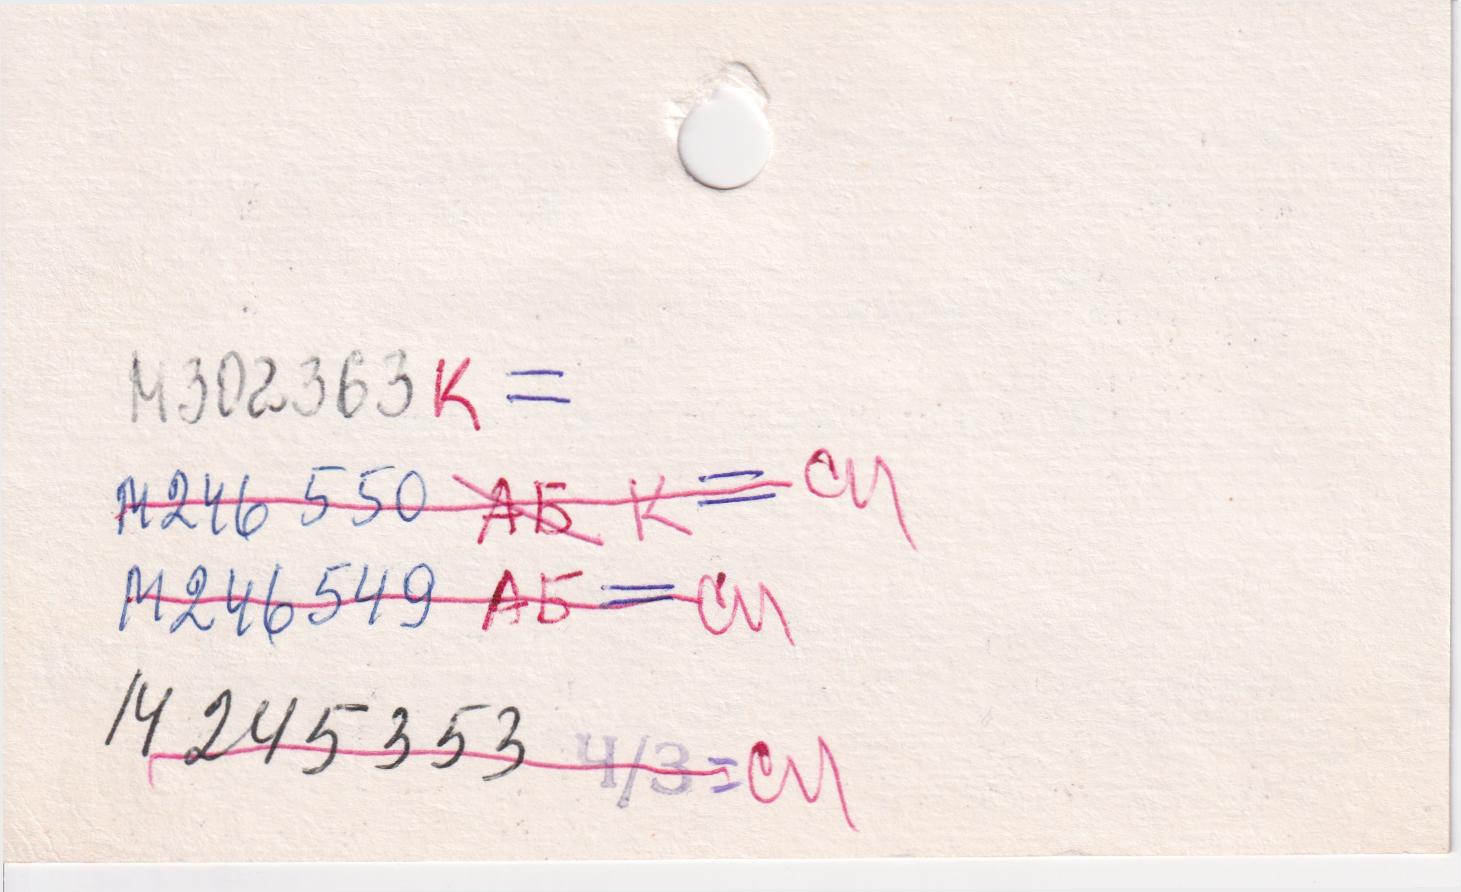 М302363 К =
М246550 АБ К = СМ
М246549 АБ = СМ
М245353 Ч/З = СМ